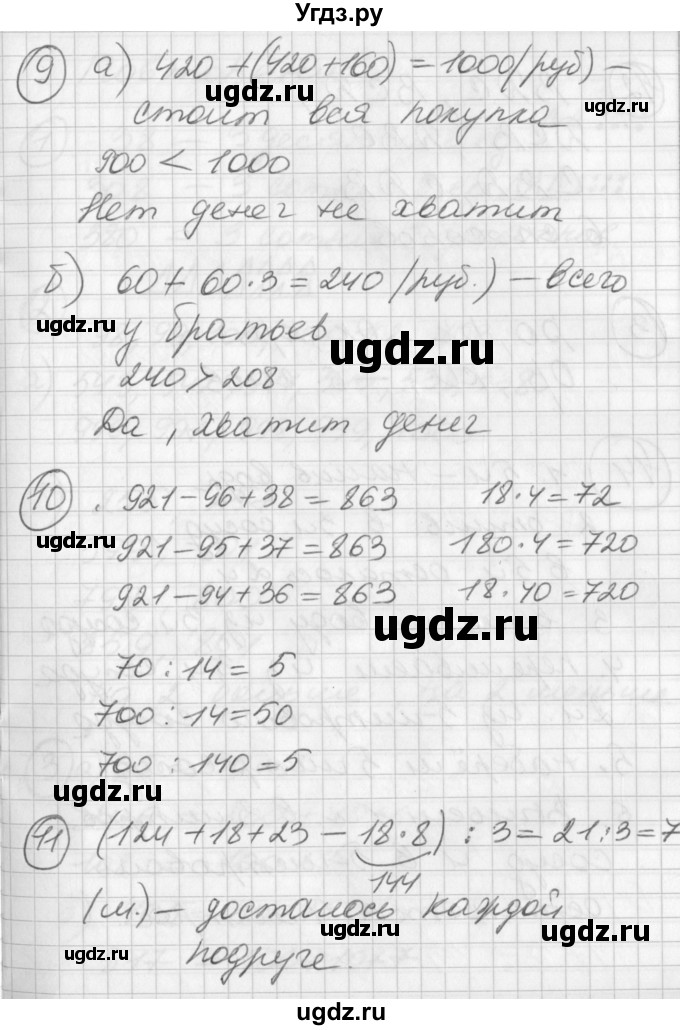 Угдз.ру
9 а) 420 + (420+160) = 1000 (руб) –
ugdz.ru
ugdz.ru
стоит вся покупка
900 < 1000
Нет денег не хватит
б) 60 + 60·3 = 240 (руб.) – всего
у братьев
ugdz.ru
240 > 208
Да, хватит денег
10 . 921 – 96 + 38 = 863 18·4 = 72
ugdz.ru
921 – 95 + 37 = 863 180·4 = 720
921 – 94 + 36 = 863 18·40 = 720
ugdz.ru
70 : 14 = 5
700 : 14 = 50
ugdz.ru
700 : 140 = 5
11 (124 + 18 + 23 – 18·8) : 3 = 21 : 3 = 7
144
(м.) – досталось каждой
ugdz.ru
ugdz.ru
ugdz.ru
подруге.
ugdz.ru